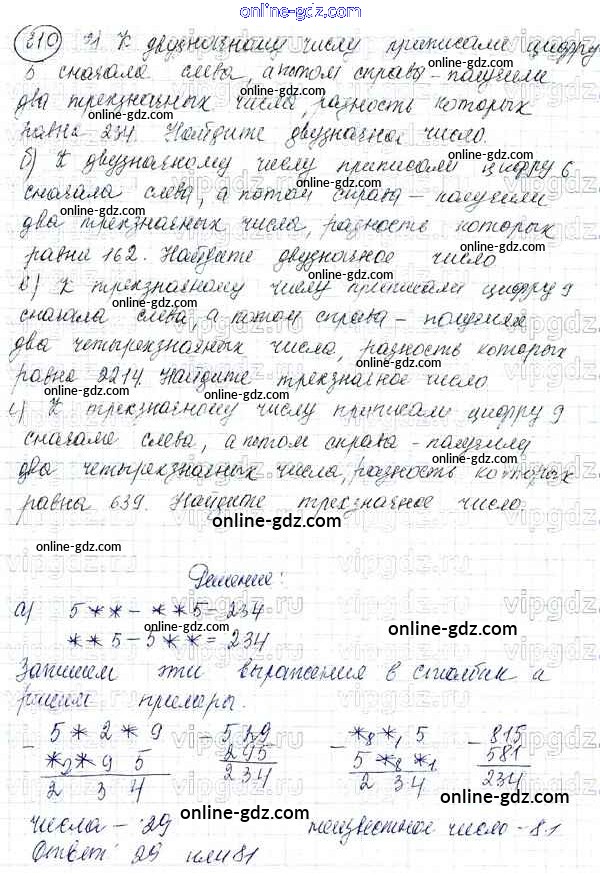 online-gdz.com
310 а) К двузначному числу приписали цифру
5 сначала слева, а потом справа – получили
два трехзначных числа, разность которых
равна 234. Найдите двузначное число.
б) К двузначному числу приписали цифру 6
сначала слева, а потом справа – получили
два трехзначных числа, разность которых
равна 162. Найдите двузначное число
в) К трехзначному числу приписали цифру 9
сначала слева, а потом справа – получили
два четырехзначных числа, разность которых
равна 2214. Найдите трехзначное число
г) К трехзначному числу приписали цифру 9
сначала слева, а потом справа – получили
два четырехзначных числа, разность которых
равна 639. Найдите трехзначное число.
online-gdz.com
Решение:
а) 5** - **5 = 234
**5 - 5** = 234
Запишем эти выражения в столбик и
решим примеры.
- 5*2*9 - 529 - *8*1 5 - 815
*2*9 5 295 5*8*1 581
2 3 4 234 2 3 4 234
числа – 29 неизвестное число – 81
Ответ: 29 или 81
online-gdz.com